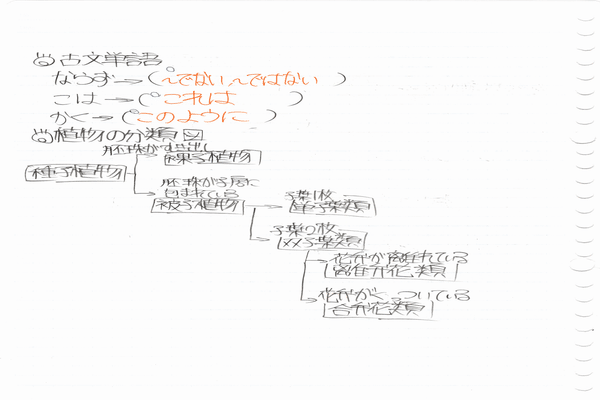 古文単語
ならず→(〜でない、〜ではない)
こは→(これは)
かく→(このように)
植物の分類図
胚珠がむき出し
種子植物 裸子植物
胚珠が子房に
包まれている
被子植物
子葉1枚
単子葉類
子葉2枚
双子葉類
花弁が離れている
離弁花類
花弁がくっついている
合弁花類